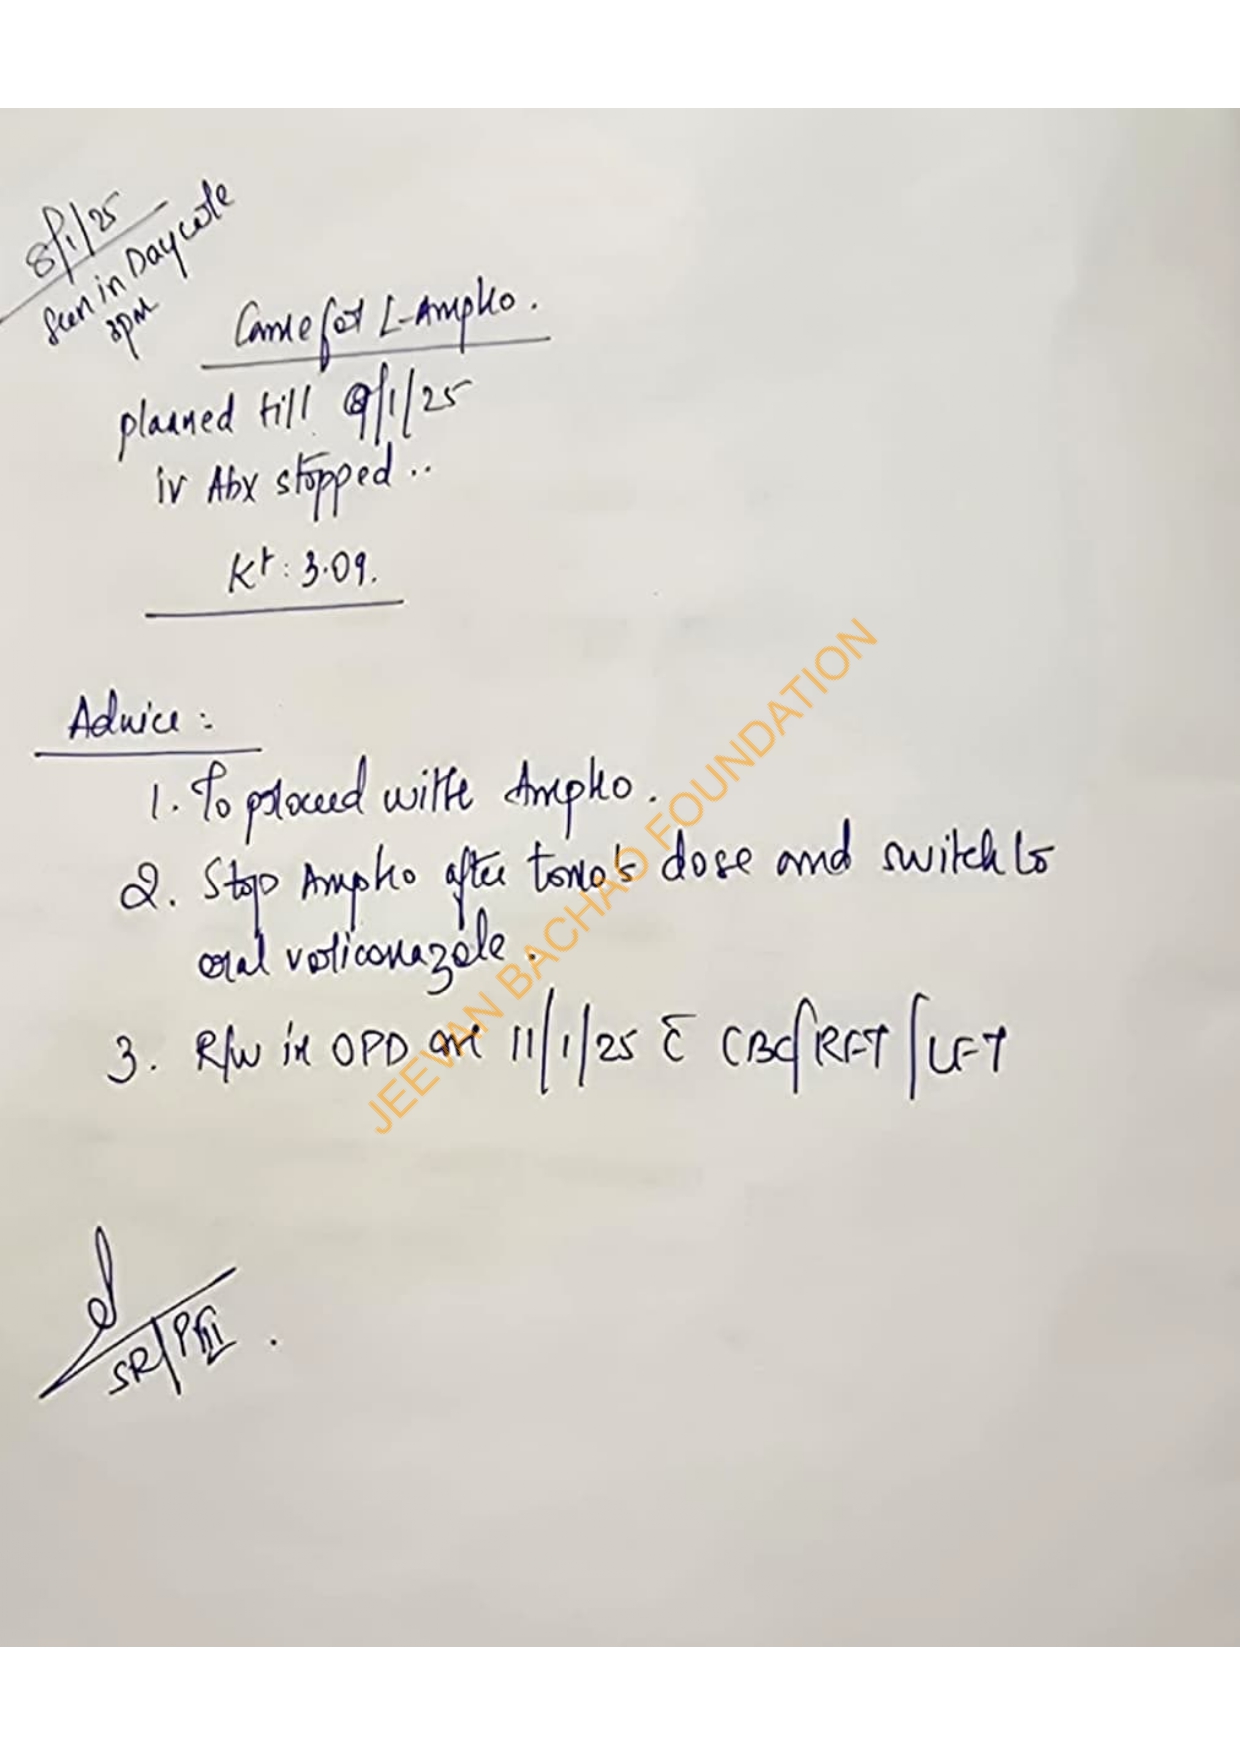 8/1/25
Seen in Daycare
3pm
Came for L-Ampho.
planned till 9/1/25
iv Abx stopped..
K+: 3.09.
Advice:
1. To proceed with Ampho.
2. Stop Ampho after tomo's dose and switch to
oral voriconazole.
3. R/w in OPD on 11/1/25 c̄ CBC/RFT/LFT
SR/PIII.
JEEVAN BACHAO FOUNDATION